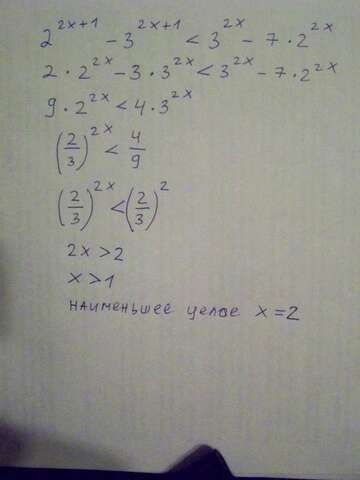 2^{2x+1} - 3^{2x+1} < 3^{2x} - 7 · 2^{2x}
2 · 2^{2x} - 3 · 3^{2x} < 3^{2x} - 7 · 2^{2x}
9 · 2^{2x} < 4 · 3^{2x}
(2/3)^{2x} < 4/9
(2/3)^{2x} < (2/3)^2
2x > 2
x > 1
наименьшее целое x = 2